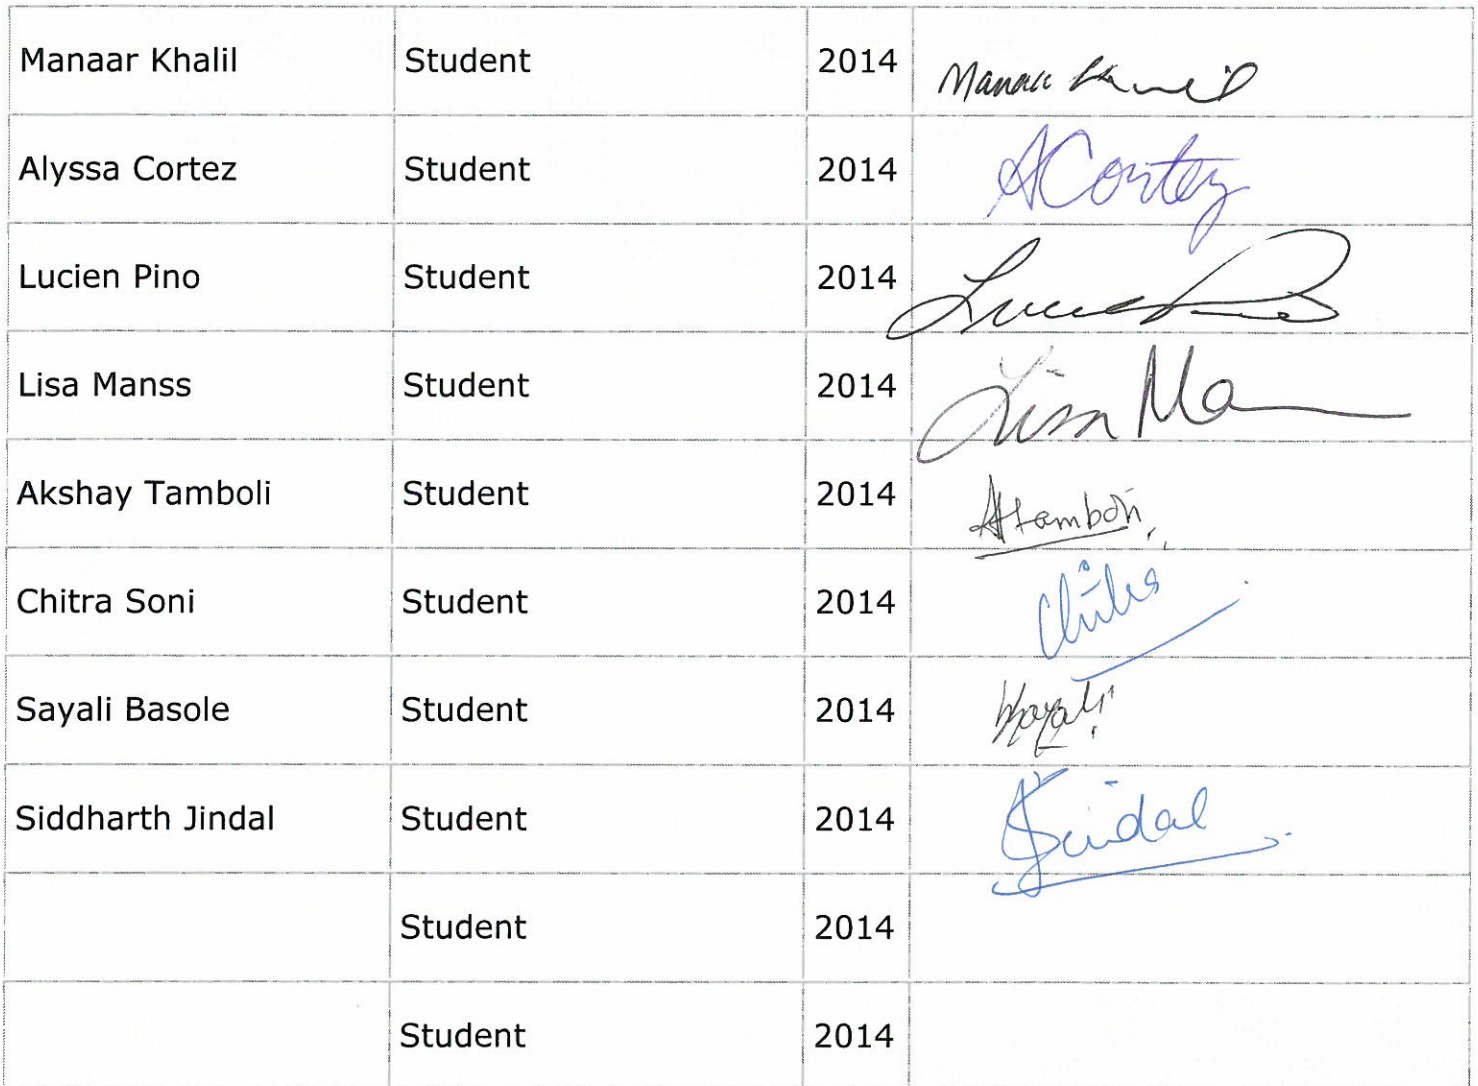 Manaar Khalil Student 2014 Manaar Khalil
Alyssa Cortez Student 2014 ACortez
Lucien Pino Student 2014
Lisa Manss Student 2014 Lisa Ma
Akshay Tamboli Student 2014 Atamboli
Chitra Soni Student 2014 Chitra
Sayali Basole Student 2014 Sayali
Siddharth Jindal Student 2014 SJindal
Student 2014
Student 2014